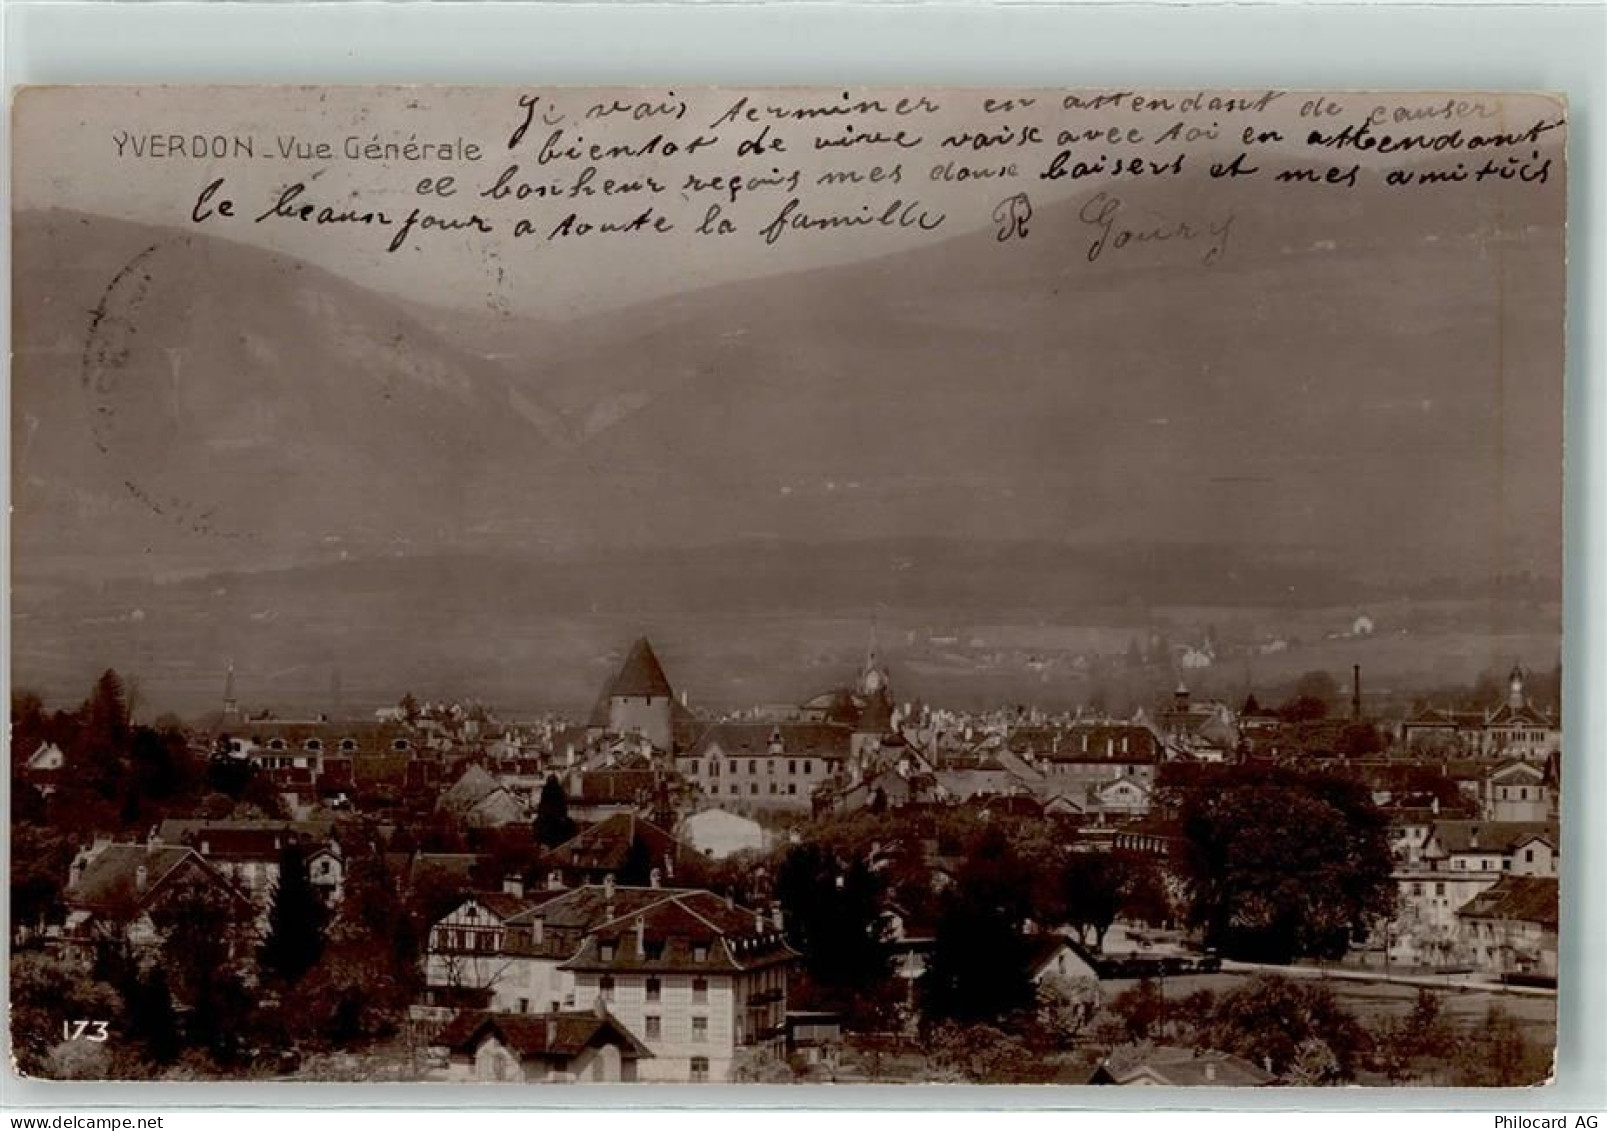 Je vais terminer en attendant de causer
YVERDON - Vue Générale
bientot de vive vaix avec toi en attendant
ce bonheur reçois mes doux baisers et mes amitiés
le beaux jour a toute la famille R Goury
173
delcampe.net
Philocard AG